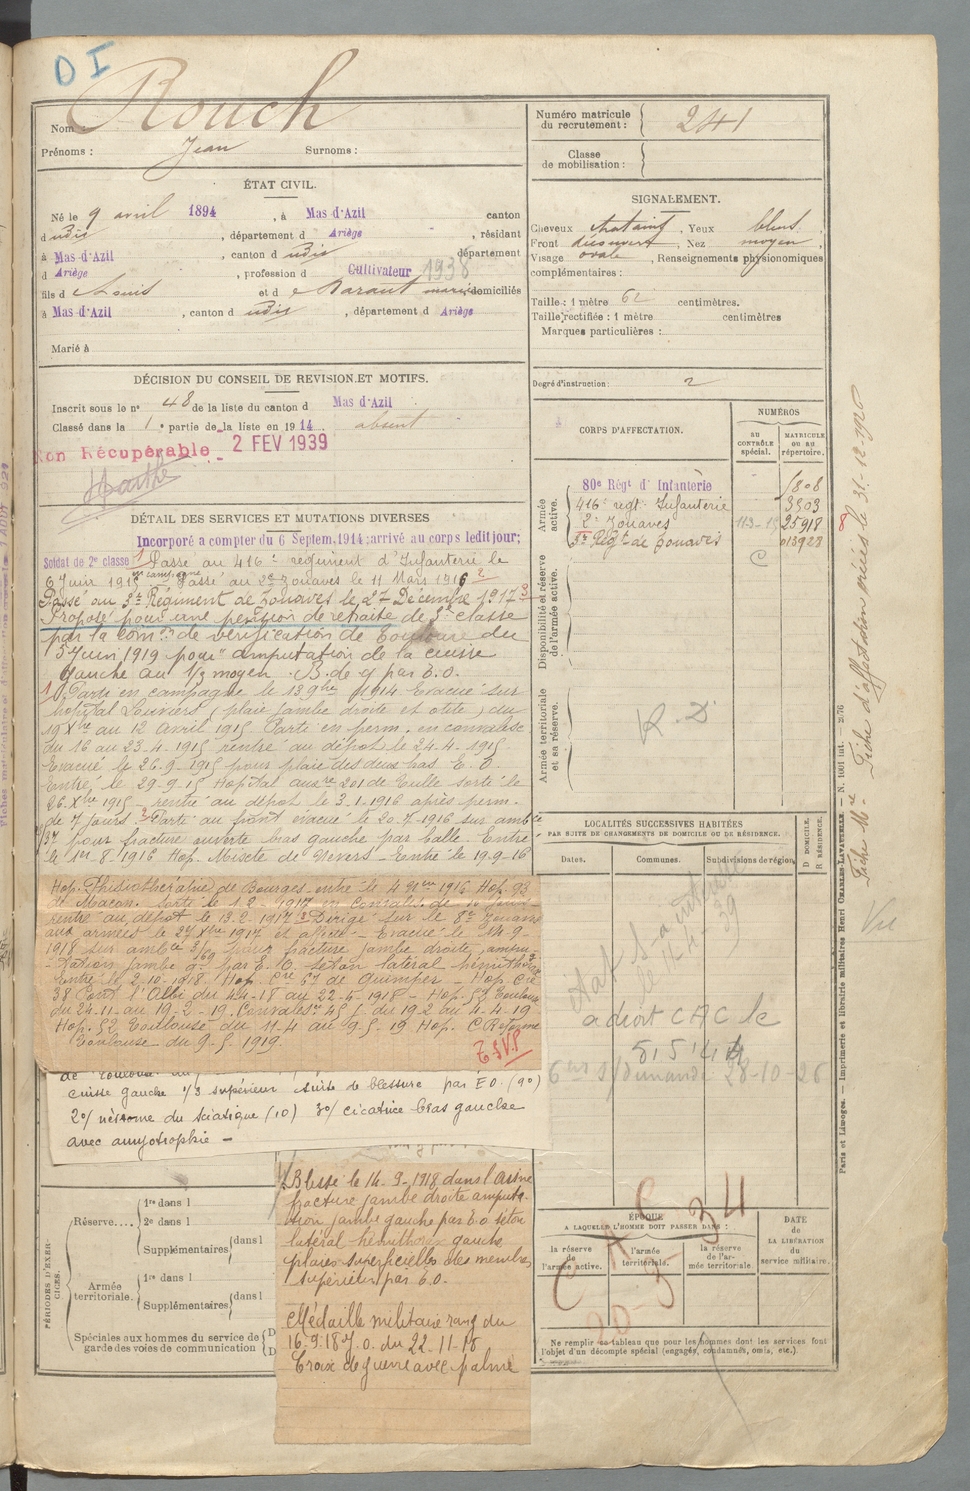 D I
Nom : Rouch
Prénoms : Jean Surnoms :
Numéro matricule du recrutement : 241
Classe de mobilisation :
ÉTAT CIVIL.
Né le 9 avril 1894, à Mas-d'Azil canton
d udis, département d Ariège, résidant
à Mas-d'Azil, canton d udis département
d Ariège, profession d Cultivateur 1938
fils d Louis et d e Barant mariés domiciliés
à Mas-d'Azil, canton d udis, département d Ariège
Marié à
SIGNALEMENT.
Cheveux chatains, Yeux bleus
Front découvert, Nez moyen,
Visage ovale, Renseignements physionomiques
complémentaires :
Taille : 1 mètre 62 centimètres.
Taille rectifiée : 1 mètre centimètres
Marques particulières :
Degré d'instruction : 2
DÉCISION DU CONSEIL DE REVISION ET MOTIFS.
Inscrit sous le n° 48 de la liste du canton d Mas d'Azil
Classé dans la 1e partie de la liste en 1914 absent
Non Récupérable 2 FEV 1939
DÉTAIL DES SERVICES ET MUTATIONS DIVERSES
Incorporé à compter du 6 Septem. 1914; arrivé au corps ledit jour;
Soldat de 2e classe Passé au 416e régiment d'Infanterie le
6 Juin 1915 Passé au 2e zouaves le 11 Mars 1916
Passé au 3e Régiment de Zouaves le 27 Décembre 1917
Proposé pour une pension de retraite de 3e classe
par la Comon de vérification de Toulouse du
5 Juin 1919 pour "amputation de la cuisse
gauche au 1/3 moyen. B. de g par E.O.
1) Parti en campagne le 13 9bre 1914 Evacué sur
hopital Louviers (plaie jambe droite et otite) du
19 Xbre au 12 Avril 1915 Parti en perm. en convalesc
du 16 au 23-4-1915 rentré au dépôt le 24-4-1915
Evacué le 26-9-1915 pour plaie des deux bras E. O.
Entré le 29-9-15 Hopital auxre 201 de Tulle sorti le
26 Xbre 1915 - rentré au dépot le 3-1-1916 après perm.
de 7 jours. Parti au front evacué le 20-7-1916 sur ambce
3/37 pour fracture ouverte bras gauche par balle. Entré
le 1er 8 1916 Hop. Mixte de Nevers - Entré le 19-9-16
Hop. Phisiothérapie de Bourges entré le 4 9bre 1916 Hop. 93
de Macon. Sorti le 1-2-1917 en Convalesc. de 10 jours
rentré au dépot le 13-2-1917 Dirigé sur le 8e Zouaves
aux armées le 27 Xbre 1917 et affecté - Evacué le 14-9-
1918 sur ambce 3/69 pour fracture jambe droite, ampu-
-tation jambe g. par E. O. seton latéral hémithorax
Entré le 2-10-1918. Hop. Cre 67 de Quimper - Hop. Cre
38 Pont l'Abbé du 4-11-18 au 22-5-1918 - Hop. 52 Toulouse
du 24-11 au 19-2-19. Convalesce 45 j. du 19-2 au 4-4-19
Hop. 52 Toulouse du 11-4 au 9-5-19 Hop. C Réforme
Toulouse du 9-5-1919.
T.S.V.P.
de Toulouse du
cuisse gauche 1/3 supérieur suite de blessure par E.O. (90)
2°/ névrome du sciatique (10) 3°/ cicatrice bras gauche
avec amyotrophie -
Blessé le 14-9-1918 dans l'Aisne
fracture jambe droite amputa-
tion jambe gauche par E.O. séton
latéral hémithorax gauche
plaies superficielles des membres
supérieurs par E.O.
Médaille militaire rang du
16.9.18 J.O. du 22-11-18
Croix de guerre avec palme
CORPS D'AFFECTATION.
NUMÉROS
AU CONTRÔLE spécial.
MATRICULE OU AU répertoire.
Armée active.
80e Régt d'Infanterie 1808
416e regt Infanterie 3503
2e Zouaves 25918
3e Régt de Zouaves 013923
C
Disponibilité et réserve de l'armée active.
Armée territoriale et sa réserve.
R. D.
LOCALITÉS SUCCESSIVES HABITÉES
PAR SUITE DE CHANGEMENTS DE DOMICILE OU DE RÉSIDENCE.
Dates. Communes. Subdivisions de région.
D DOMICILE.
R RÉSIDENCE.
a droit CAC le
5.15.1.44
28-10-26
CAC
20-3-34
ÉPOQUE
A LAQUELLE L'HOMME DOIT PASSER DANS :
la réserve de l'armée active. l'armée territoriale. la réserve de l'armée territoriale.
DATE de LA LIBÉRATION du service militaire.
Ne remplir ce tableau que pour les hommes dont les services font
l'objet d'un décompte spécial (engagés, condamnés, omis, etc.).
PÉRIODES D'EXERCICES.
Réserve.... 1re dans l
2e dans l
Supplémentaires dans l
Armée territoriale. 1re dans l
Supplémentaires dans l
Spéciales aux hommes du service de
garde des voies de communication
Fiche Mle. Fiche d'affectation créées le 31-12-1920
Vu
Paris et Limoges. — Imprimerie et librairie militaires Henri CHARLES-LAVAUZELLE — N. 1001 int. — 2/76